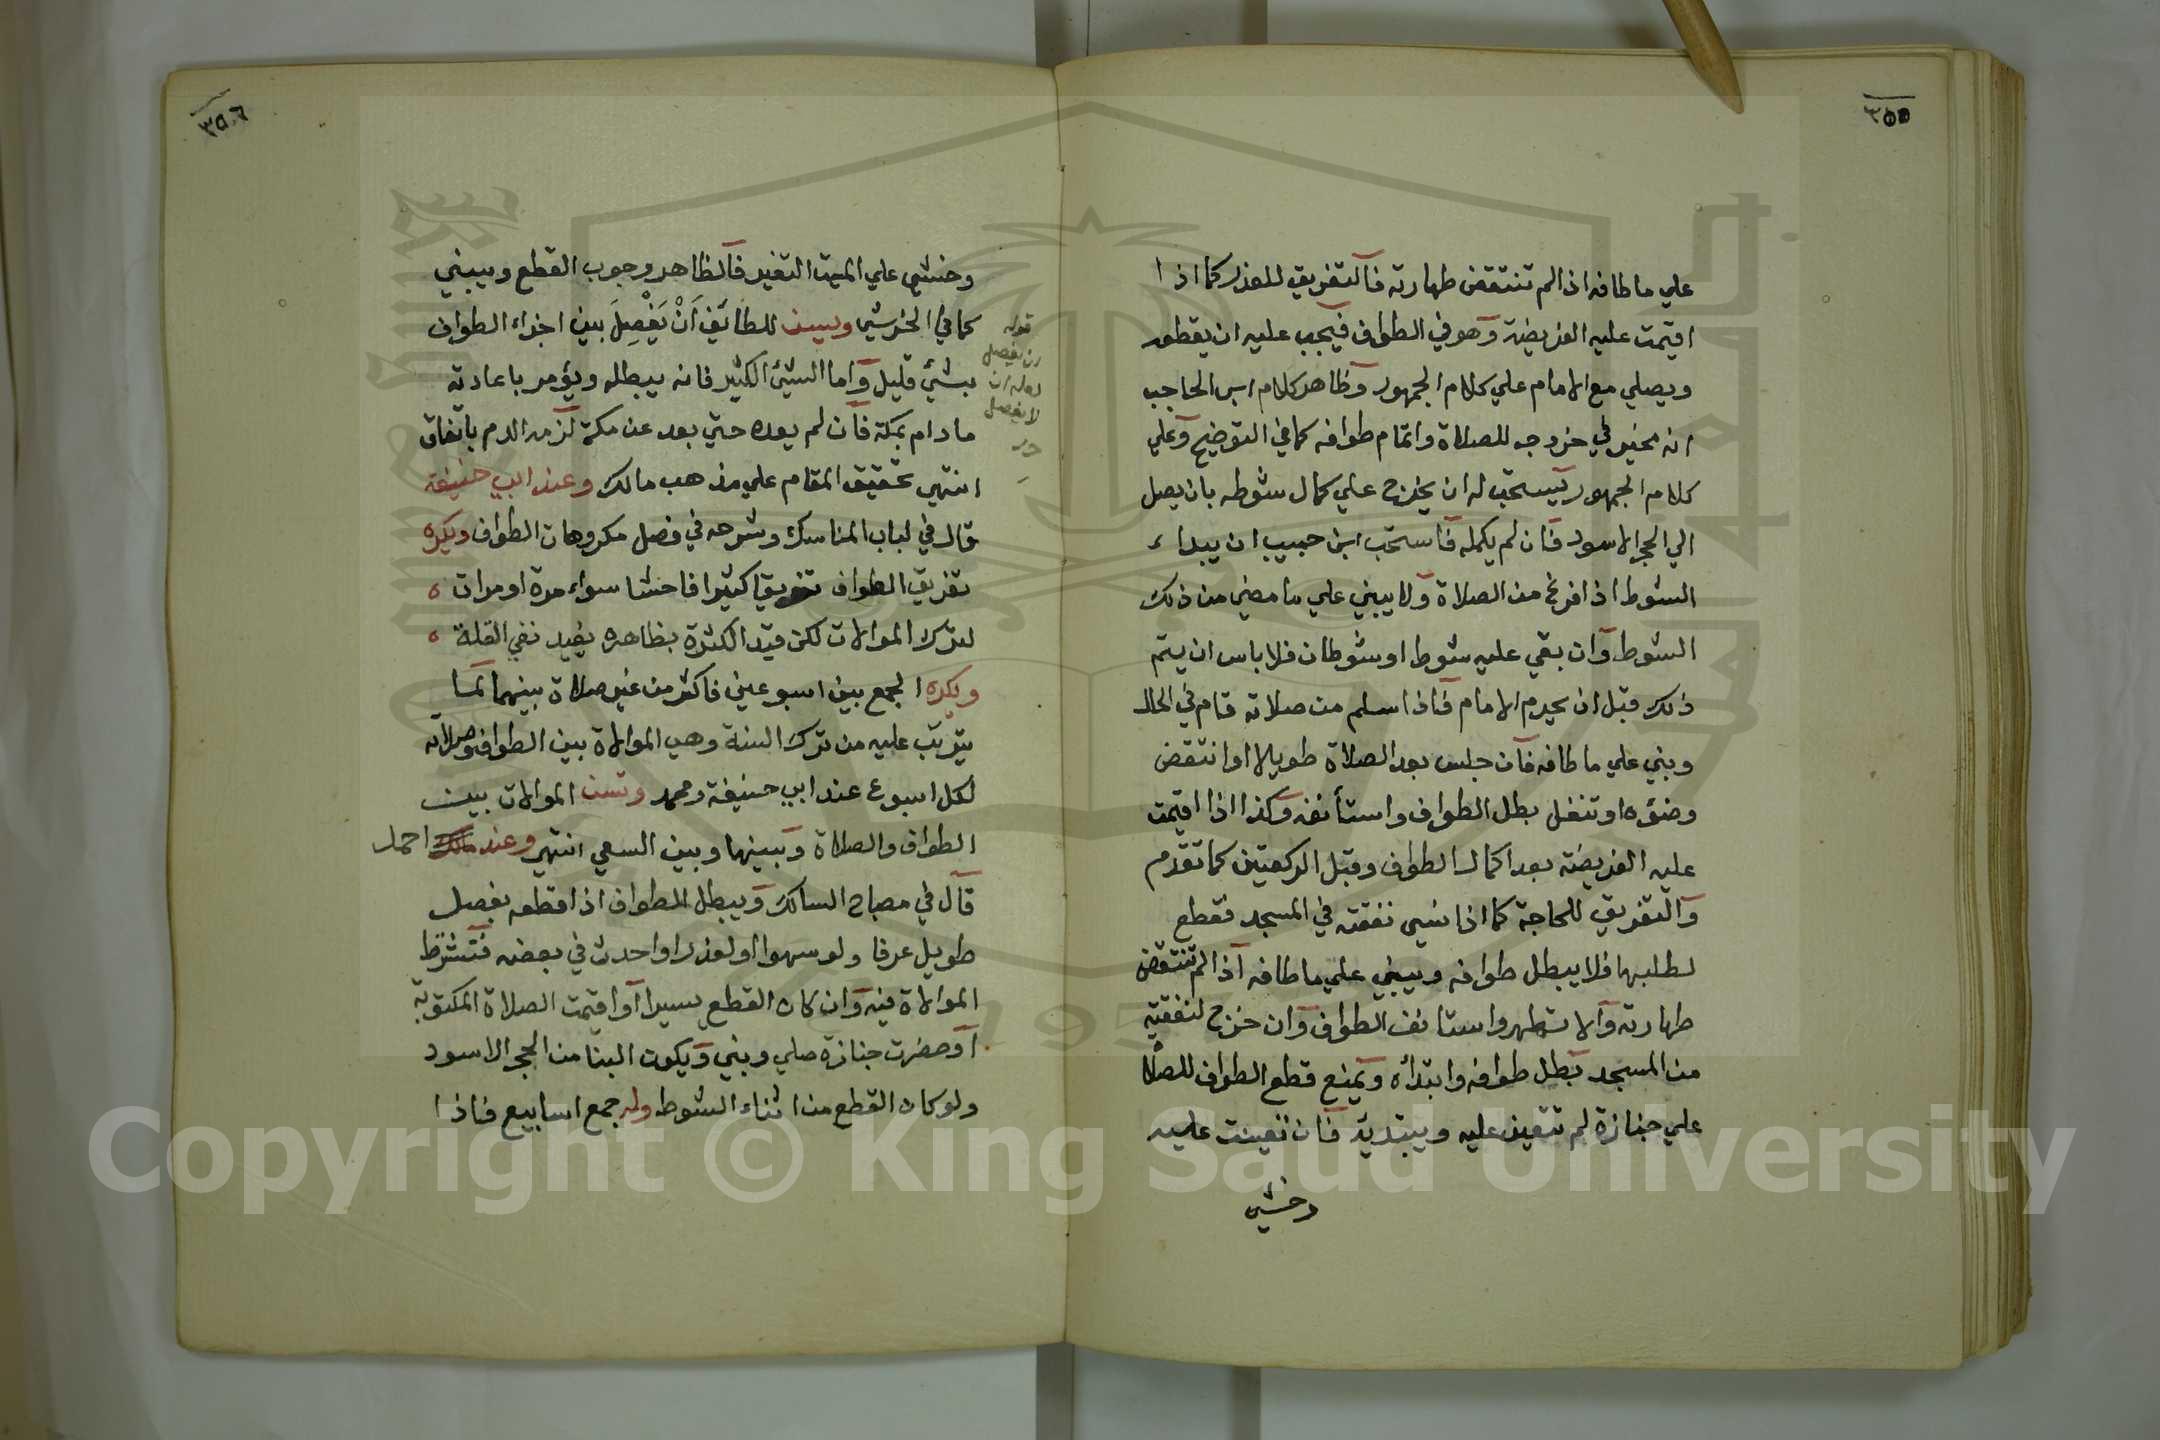 ٣٥٥
علي ما طافه اذا لم تنتقض طهارته فالتفريق للعذر كما اذا
اقيمت عليه الفريضة وهو في الطواف فيجب عليه ان يقطعه
ويصلي مع الامام علي كلام الجمهور وظاهر كلام ابن الحاجب
انه مخير في خروجه للصلاة واتمام طوافه كما في التوضيح وعلي
كلام الجمهور يستحب له ان يخرج علي كمال شوطه بان يصل
الي الحجر الاسود فان لم يكمله فاستحب ابن حبيب ان يبداء
الشوط اذا فرغ من الصلاة ولا يبني علي ما مضي من ذلك
الشوط وان بقي عليه شوط او شوطان فلا باس ان يتم
ذلك قبل ان يحرم الامام فاذا سلم من صلاته قام في الحال
وبني علي ما طافه فان جلس بعد الصلاة طويلا او انتقض
وضؤه او تنفل بطل الطواف واستأنفه وكذا اذا اقيمت
عليه الفريضة بعد اكمال الطواف وقبل الركعتين كما تقدم
والتفريق للحاجة كما اذا نسي نفقته في المسجد فقطع
لطلبها فلا يبطل طوافه ويبني علي ما طافه اذا لم تنتقض
طهارته والا تطهر واستانف الطواف وان خرج لنفقته
من المسجد بطل طوافه وابتدأه ويمنع قطع الطواف للصلاة
علي جنازة لم تتعين عليه ويبتديه فان تعينت عليه
وخشي
٣٥٦
وخشي علي الميت التغير فالظاهر وجوب القطع ويبني
كما في الخرشي ويسن للطائف أَنْ يَفْصِلَ بين اجزاء الطواف
بشئ قليل واما الشئ الكثير فانه يبطله ويؤمر باعادته
ما دام بمكة فان لم يعده حتي بعد عن مكة لزمه الدم باتفاق
انتهي تحقيق المقام علي مذهب مالك وعند ابي حنيفة
قال في لباب المناسك وشرحه في فصل مكروهات الطواف ويكره
تفريق الطواف تفريقا كثيرا فاحشا سواء مرة او مرات ه
لترك الموالات لكن قيد الكثرة بظاهره يفيد نفي القلة ه
ويكره الجمع بين اسبوعين فاكثر من غير صلاة بينهما لما
يترتب عليه من ترك السنة وهي الموالاة بين الطواف وصلاته
لكل اسبوع عند ابي حنيفة ومحمد وتسن الموالات بين
الطواف والصلاة وبينها وبين السعي انتهي وعند مالك احمد
قال في مصباح السالك ويبطل الطواف اذا قطعه بفصل
طويل عرفا ولو سهوا او لعذر او احدث في بعضه فتشترط
الموالاة فيه وان كان القطع يسيرا او اقيمت الصلاة المكتوبة
او حضرت جنازة صلي وبني ويكون البنا من الحجر الاسود
ولو كان القطع من اثناء الشوط وله جمع اسابيع فاذا
قوله
ان يفصل
لعله ان
لا يفصل
Copyright © King Saud University
1957